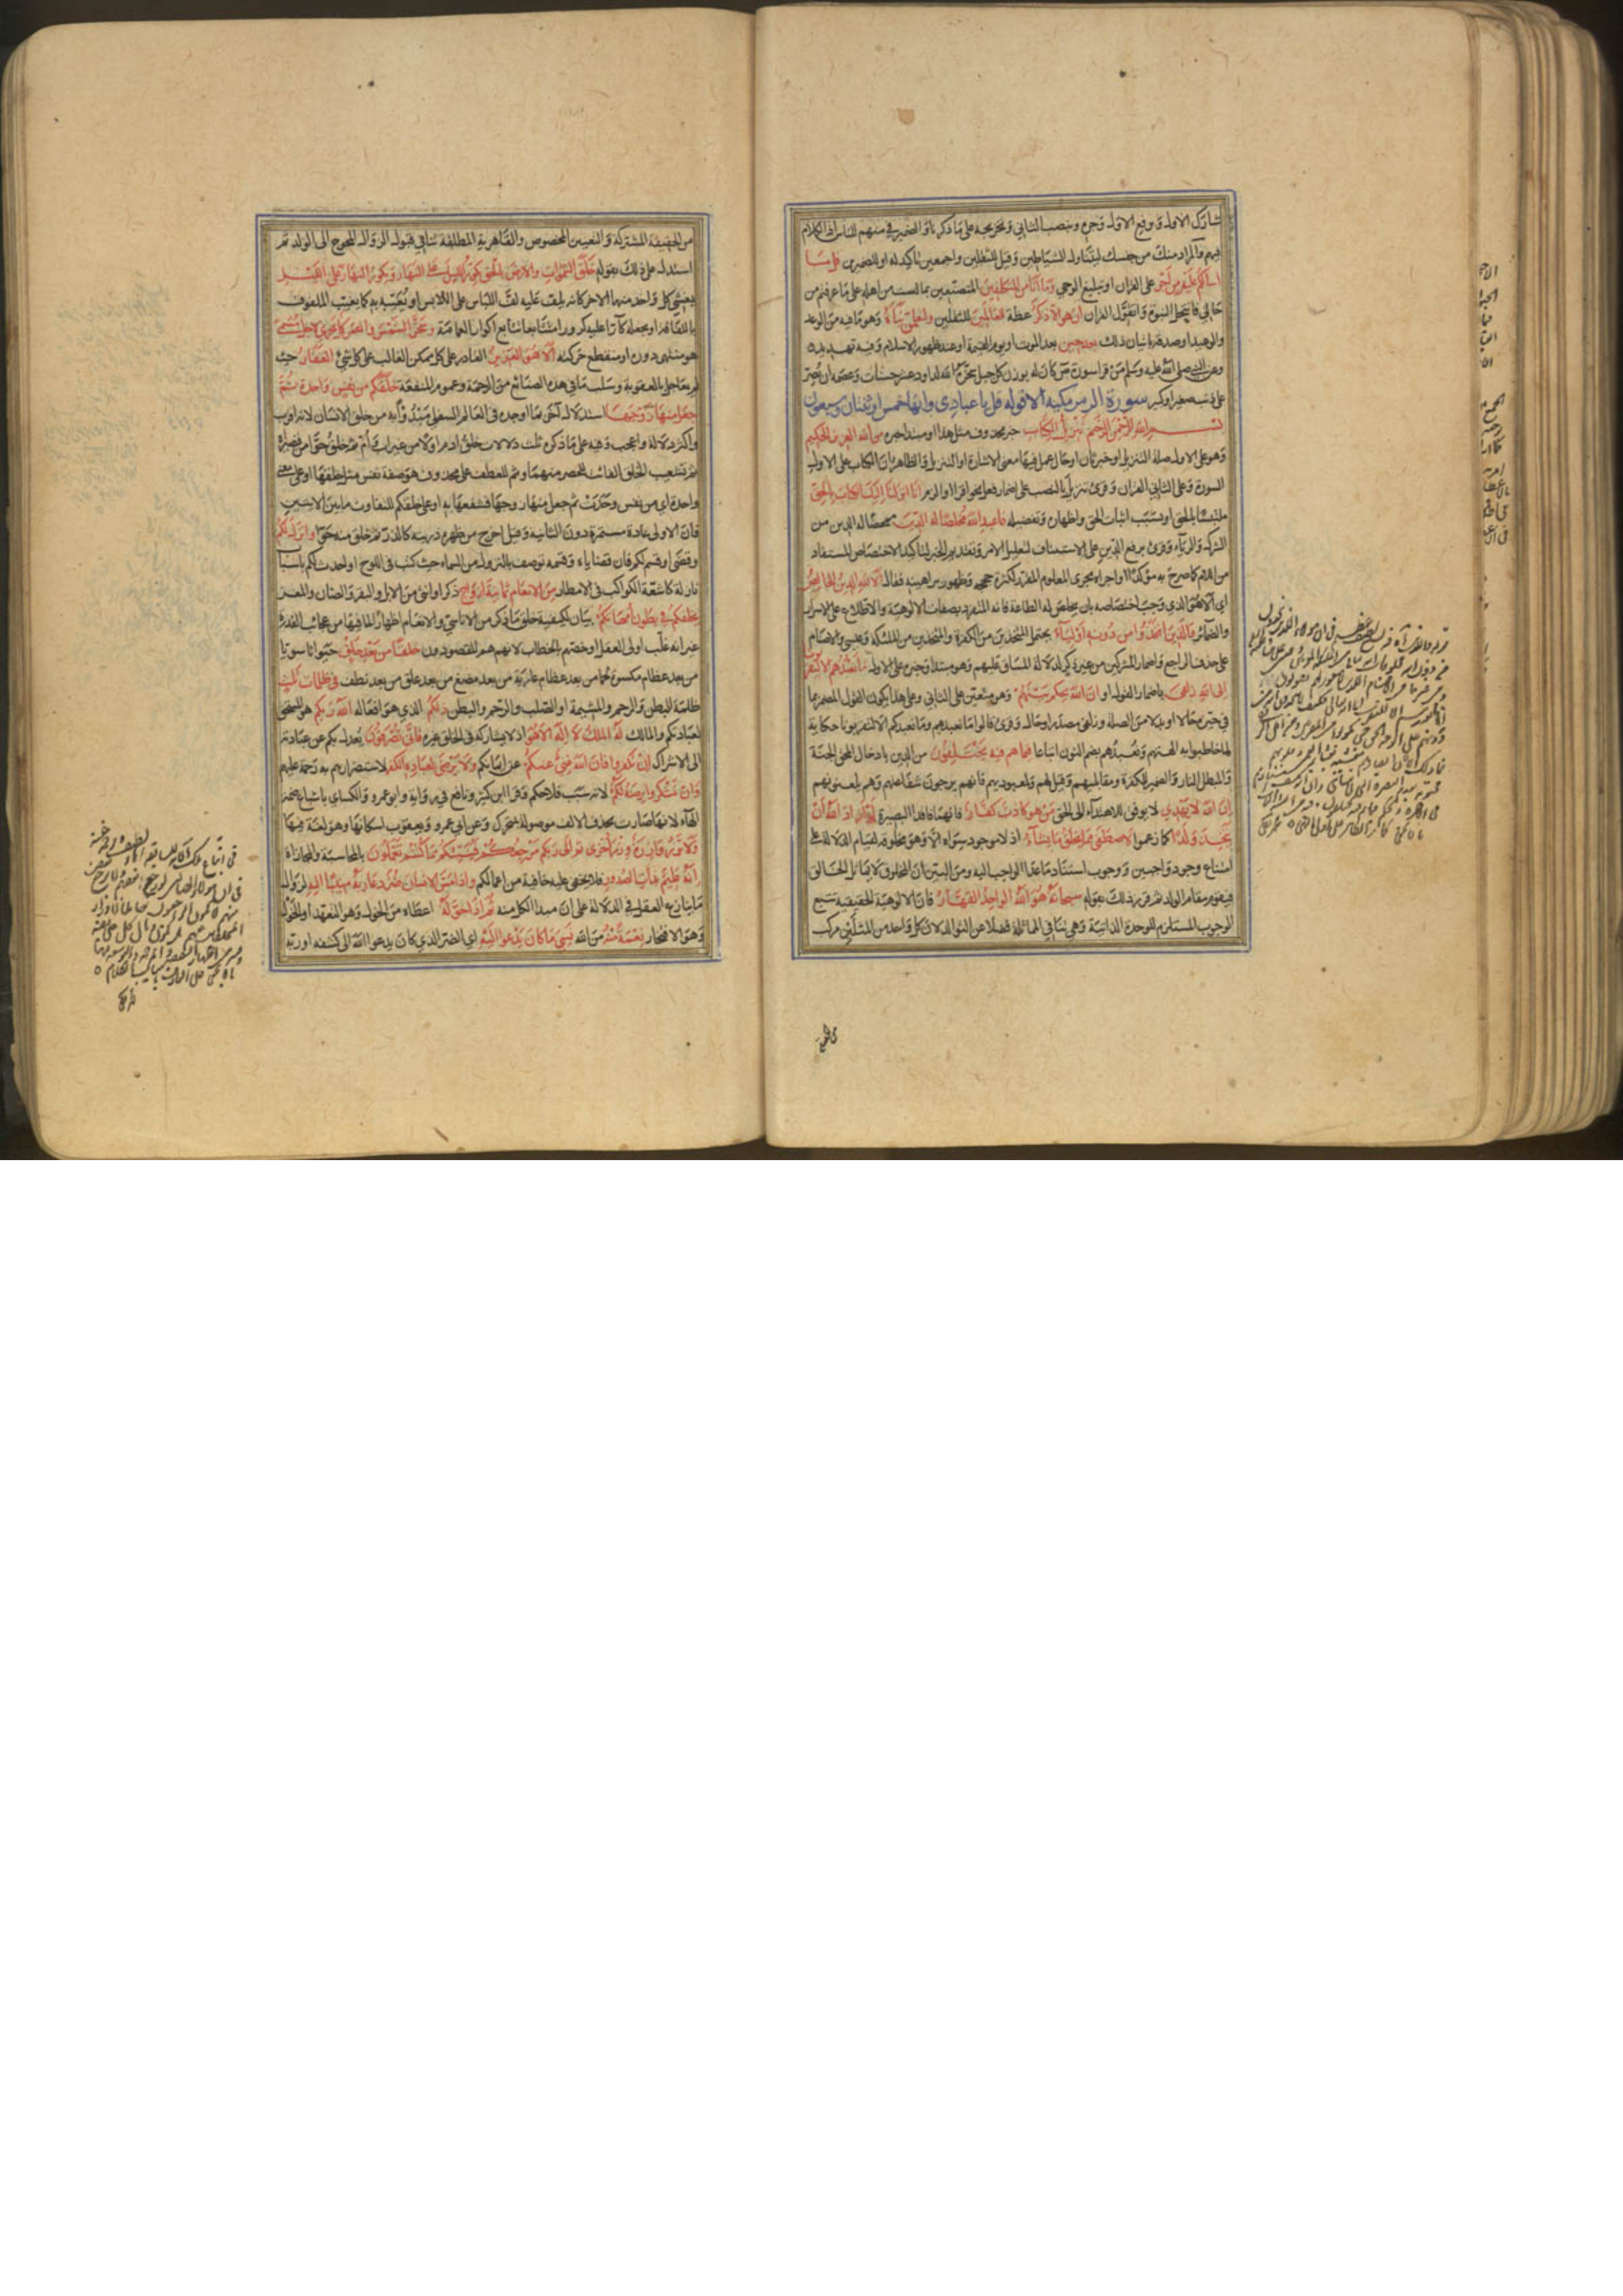 شارك الاول وبرفع الاول وجره ونصب الثاني وتخريجه على ما ذكرنا والضمير في منهم للناس اذ الكلام
فيهم والمراد منك من جنسك ليتناول الشياطين وقيل للثقلين واجمعين تاكيد له او للضميرين قل ما
اسألكم عليه من اجر على القران او تبليغ الوحي وما انا من المتكلفين المتصنعين بما لست من اهله على ما عرفتم من
حالي فانتحل النبوة واتقول القران ان هو الا ذكر عظة للعالمين للثقلين ولتعلمن نباه وهو ما فيه من الوعد
والوعيد او صدقه باتيان ذلك بعد حين بعد الموت او يوم القيمة او عند ظهور الاسلام وفيه تهديد
وعن النبي صلى الله عليه وسلم من قرا سورة ص كان له بوزن كل جبل سخره الله لداود عشر حسنات وعصمه ان يصر
على ذنب صغير او كبير سورة الزمر مكية الا قوله قل يا عبادي وايها خمس او ثنتان وسبعون
بسم الله الرحمن الرحيم تنزيل الكتاب خبر محذوف مثل هذا او مبتدا خبره من الله العزيز الحكيم
وهو على الاول صلة التنزيل او خبر ثان او حال عمل فيها معنى الاشارة او التنزيل والظاهر ان الكتاب على الاول
السورة وعلى الثاني القران وقرئ تنزيل بالنصب على اضمار فعل نحو اقرا او الزم انا انزلنا اليك الكتاب بالحق
ملتبسا بالحق او بسبب اثبات الحق واظهاره وتفصيله فاعبد الله مخلصا له الدين ممحضا له الدين من
الشرك والرياء وقرئ برفع الدين على الاستيناف لتعليل الامر وتقديم الخبر لتاكيد الاختصاص المستفاد
من اللام كما صرح به مؤكدا واجراه مجرى المعلوم المقرر لكثرة حججه وظهور براهينه فقال الا لله الدين الخالص
اي الا هو الذي وجب اختصاصه بان يخلص له الطاعة فانه المتفرد بصفات الالوهية والاطلاع على الاسرار
والضمائر والذين اتخذوا من دونه اولياء يحتمل المتخذين من الكفرة والمتخذين من الملئكة وعيسى والاصنام
على حذف الراجع واضمار المشركين من غير ذكر لدلالة المساق عليهم وهو مبتدا وخبره على الاول ما نعبدهم الا ليقربونا
الى الله زلفى باضمار القول او ان الله يحكم بينهم وهو متعين على الثاني وعلى هذا يكون القول المضمر بما
في حيزه حالا او بدلا من الصلة وزلفى مصدر او حال وقرئ قالوا ما نعبدهم وما نعبدكم الا لتقربونا حكاية
لما خاطبوا به الهتهم ونعبدهم بضم النون اتباعا فيما هم فيه يختلفون من الدين بادخال المحق الجنة
والمبطل النار والضمير للكفرة ومقابليهم وقيل لهم ولمعبوديهم فانهم يرجون شفاعتهم وهم يلعنونهم
ان الله لا يهدي لا يوفق للاهتداء الى الحق من هو كاذب كفار فانهما فاقدا البصيرة لو اراد الله ان
يتخذ ولدا كما زعموا لاصطفى مما يخلق ما يشاء اذ لا موجود سواه الا وهو مخلوقه لقيام الدلالة على
امتناع وجود واجبين ووجوب استناد ما عدا الواجب اليه ومن البين ان المخلوق لا يماثل الخالق
فيقوم مقام الولد له ثم قرر ذلك بقوله سبحانه هو الله الواحد القهار فان الالوهية الحقيقية تتبع
الوجوب المستلزم للوحدة الذاتية وهي تنافي المماثلة فضلا عن التوالد لان كل واحد من المثلين مركب
من الحقيقة المشتركة والتعين المخصوص والقاهرية المطلقة تنافي قبول الزوال المحوج الى الولد ثم
استدل على ذلك بقوله خلق السموات والارض بالحق يكور الليل على النهار ويكور النهار على الليل
يغشى كل واحد منهما الاخر كانه يلف عليه لف اللباس على اللابس او يغيبه به كما يغيب الملفوف
باللفافة او يجعله كارا عليه كرورا متتابعا تتابع اكوار العمامة وسخر الشمس والقمر كل يجري لاجل مسمى
هو منتهى دوره او منقطع حركته الا هو العزيز القادر على كل ممكن الغالب على كل شئ الغفار حيث
لم يعاجل بالعقوبة وسلب ما في هذه الصنائع من الرحمة وعموم المنفعة خلقكم من نفس واحدة ثم
جعل منها زوجها استدلال اخر بما اوجده في العالم السفلي مبدوا به من خلق الانسان لانه اقرب
واكثر دلالة واعجب وفيه على ما ذكره ثلث دلالات خلق ادم اولا من غير اب وام ثم خلق حوا من قصيراه
ثم تشعيب الخلق الفائت للحصر منهما وثم للعطف على محذوف هو صفة نفس مثل خلقها او على معنى
واحدة اي من نفس وحدت ثم جعل منها زوجها فشفعها به او على خلقكم لتفاوت ما بين الايتين
فان الاولى عادة مستمرة دون الثانية وقيل اخرج من ظهره ذريته كالذر ثم خلق منه حوا وانزل لكم
وقضى او قسم لكم فان قضاياه وقسمه توصف بالنزول من السماء حيث كتب في اللوح او احدث لكم باسباب
نازلة كاشعة الكواكب في الامطار من الانعام ثمانية ازواج ذكرا وانثى من الابل والبقر والضان والمعز
يخلقكم في بطون امهاتكم بيان لكيفية خلق ما ذكر من الاناسي والانعام اظهارا لما فيها من عجائب القدرة
غير انه غلب اولى العقل او خصهم بالخطاب لانهم هم المقصودون خلقا من بعد خلق حيوانا سويا
من بعد عظام مكسوة لحما من بعد عظام عارية من بعد مضغ من بعد علق من بعد نطف في ظلمات ثلث
ظلمة البطن والرحم والمشيمة او الصلب والرحم والبطن ذلكم الذي هو افعاله الله ربكم هو المستحق
لعبادتكم والمالك له الملك لا اله الا هو اذ لا يشاركه في الخلق غيره فانى تصرفون يعدل بكم عن عبادته
الى الاشراك ان تكفروا فان الله غني عنكم عن ايمانكم ولا يرضى لعباده الكفر لاستضرارهم به رحمة عليهم
وان تشكروا يرضه لكم لانه سبب فلاحكم وقرا ابن كثير ونافع في رواية وابو عمرو والكسائي باشباع ضمة
الهاء لانها صارت بحذف الالف موصولة بمتحرك وعن ابي عمرو ويعقوب اسكانها وهو لغة فيها
ولا تزر وازرة وزر اخرى ثم الى ربكم مرجعكم فينبئكم بما كنتم تعملون بالمحاسبة والمجازاة
انه عليم بذات الصدور فلا يخفى عليه خافية من اعمالكم واذا مس الانسان ضر دعا ربه منيبا اليه لزوال
ما ينازع العقل في الدلالة على ان مبدا الكل منه ثم اذا خوله اعطاه من الخول وهو التعهد او الخول
وهو الافتخار نعمة منه من الله نسي ما كان يدعو اليه اي الضر الذي كان يدعو الله الى كشفه او ربه